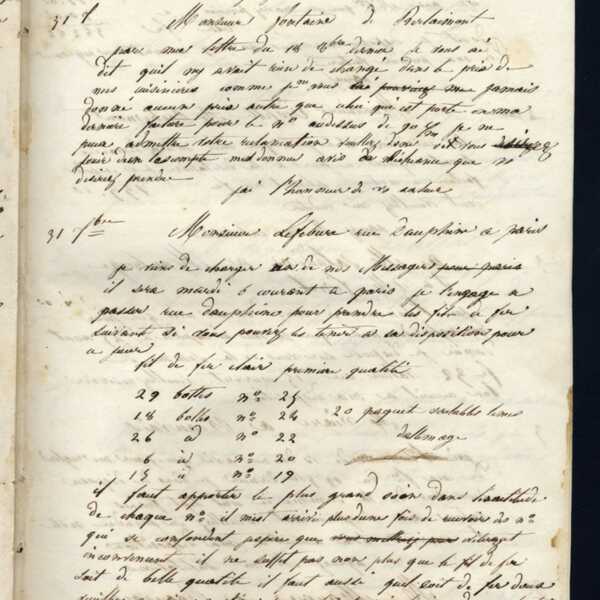 31 Monsieur fontaine de Berlaimont
par ma lettre du 18 8bre dernier je vous ai
dit quil ny avait rien de changé dans le prix de
mes cuisinières comme je vous jamais
donné aucun prix autre que celui qui est porté en ma
dernière facture pour le no audessus de je ne
puis admettre votre reclamation veuillez donc vous
pour dun acompte me donner avis de que
desirez prendre
jai lhonneur de vs saluer
31 7bre Monsieur Lefebure rue Dauphine a paris
je viens de charger un de nos Messagers pour paris
il sera mardi 6 courant a paris je lengage a
passer rue dauphine pour prendre les fils de fer
suivant si vous pouvez les tenir a sa disposition pour
ce jour
fil de fer clair première qualité
29 bottes no 25
18 bottes no 24 20 paquet veritables limes
26 id no 22 dallemage
6 id no 20
15 id no 19
il faut apporter le plus grand soin dans lexactitude
de chaque no il mest arrivé plusdune fois de recevoir des no
qui se confondent jespere que
inconvenient il ne suffit pas non plus que le fil de fer
soit de belle qualité il faut aussi quil soit de fer doux